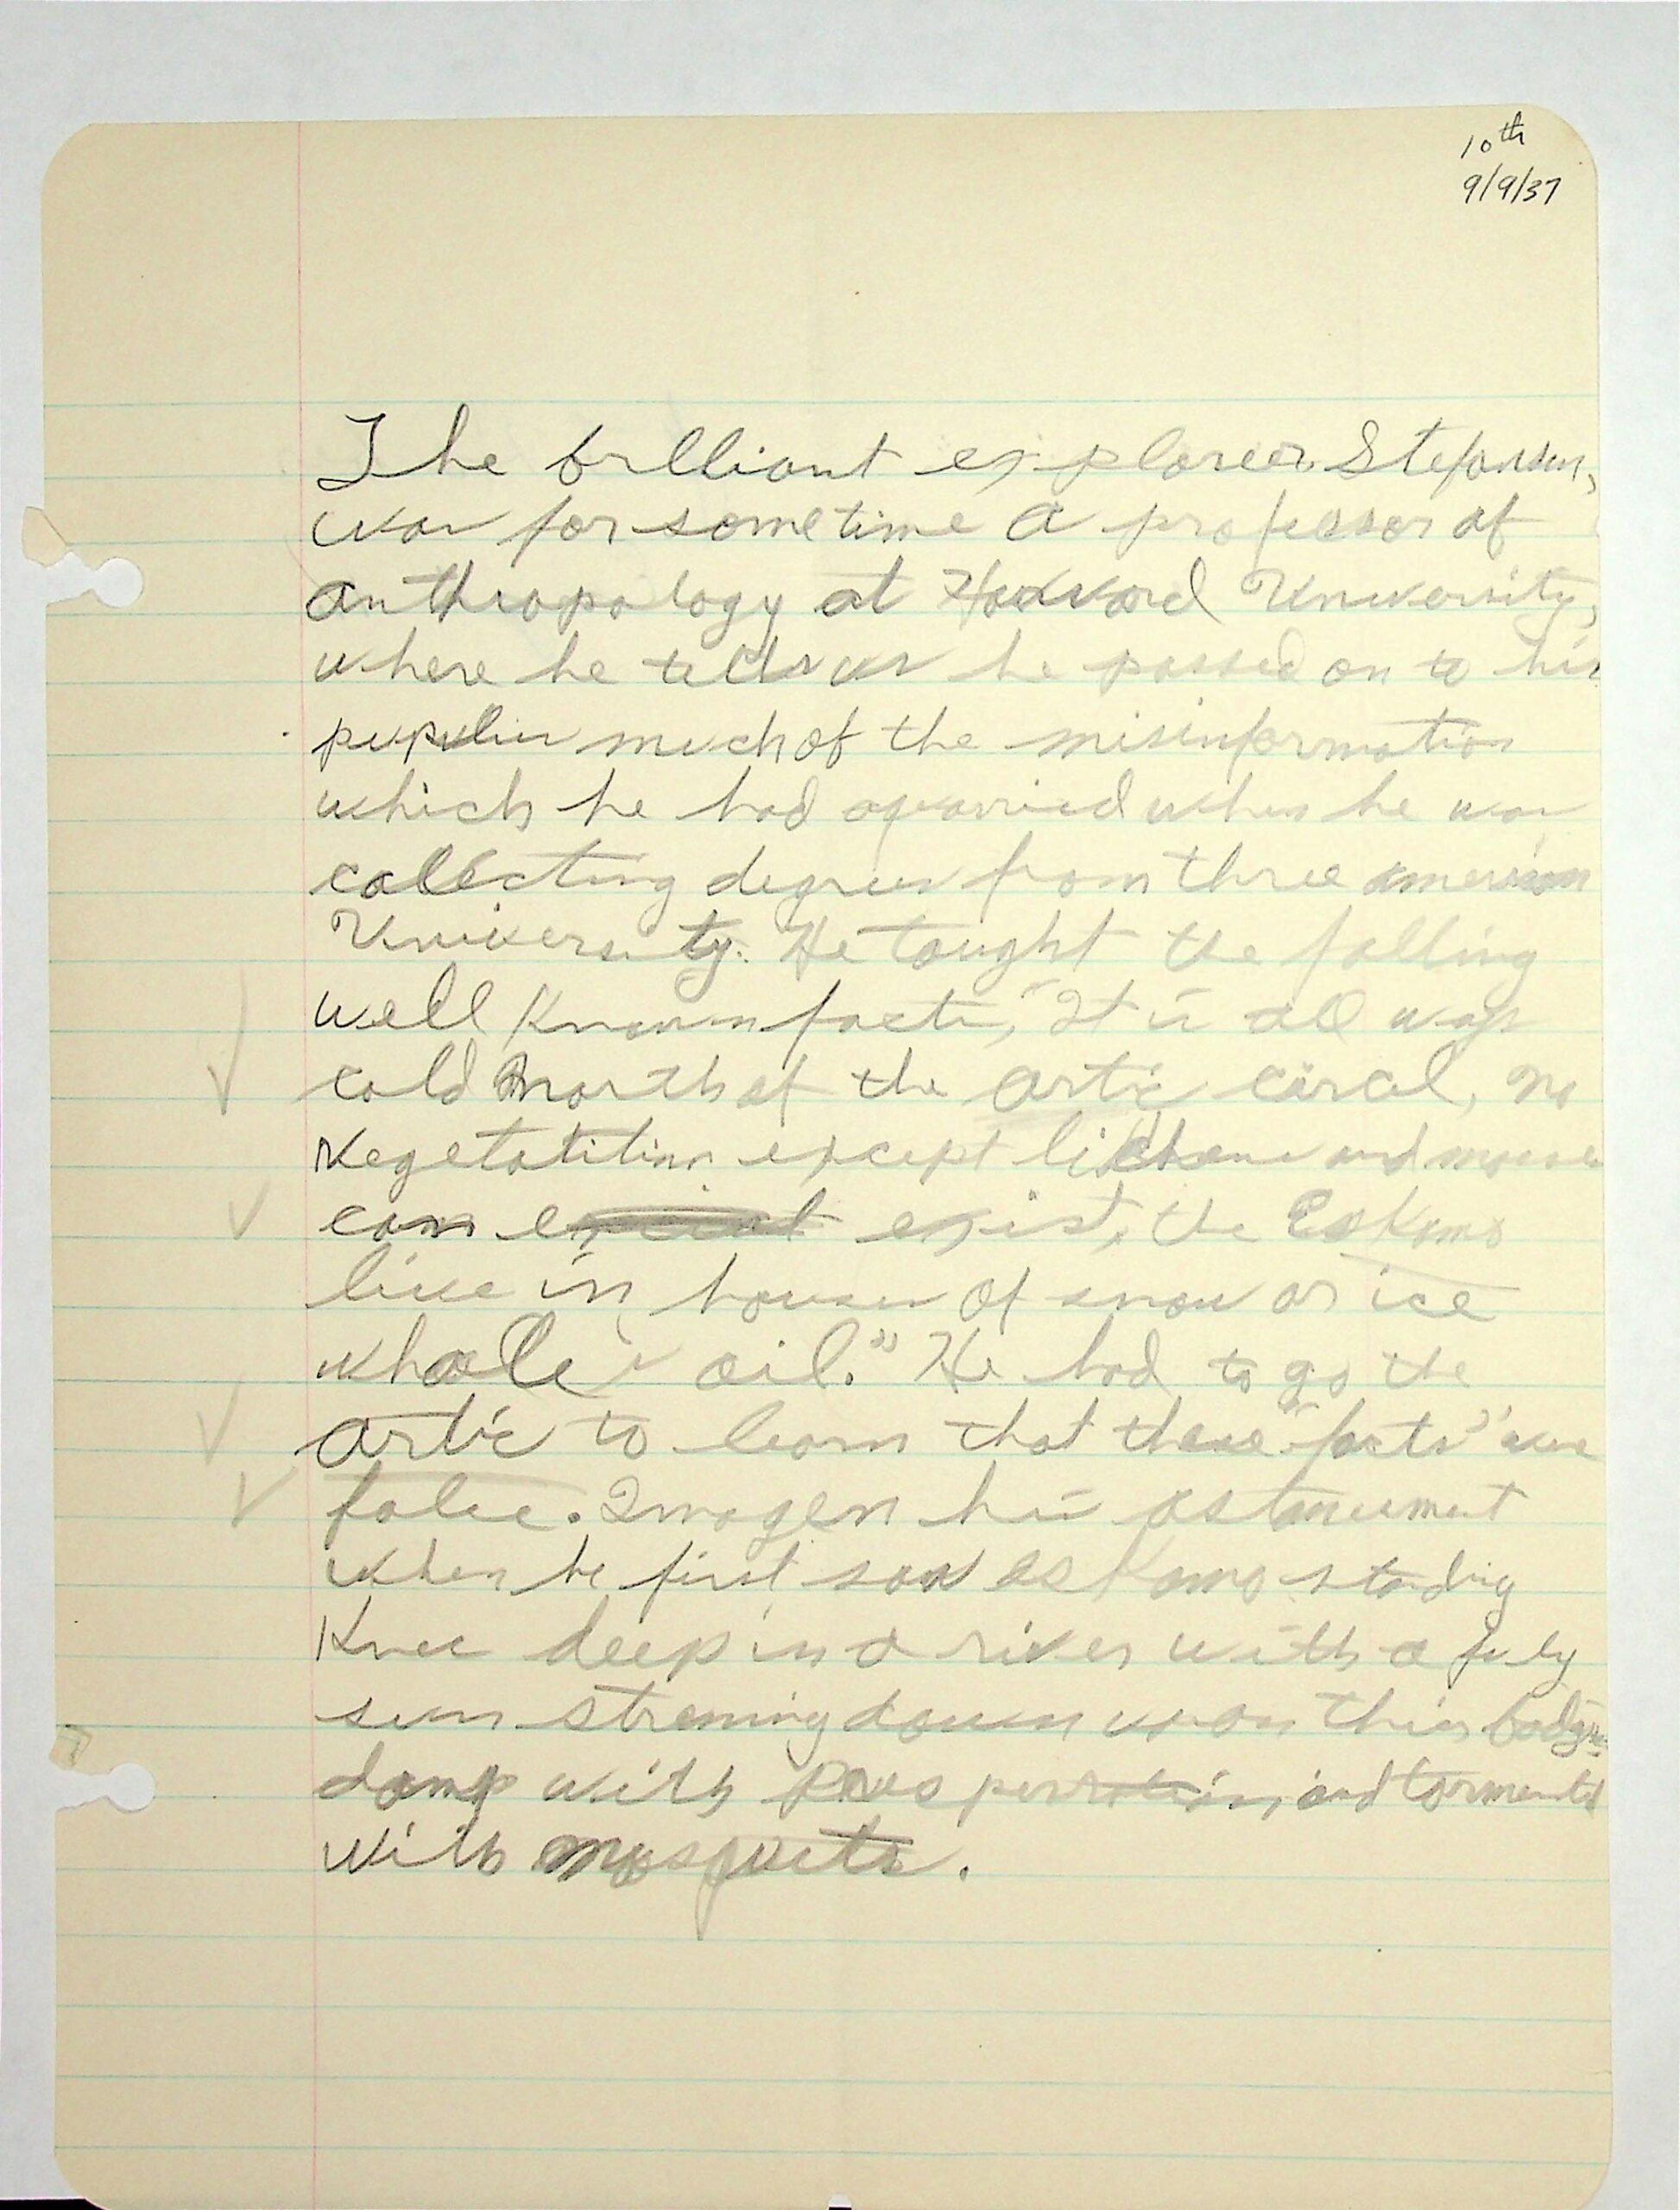 10th
9/9/37
The brilliant exploreer Stefonson,
was for sometime a professor of
anthropology at Harvard University,
where he tells us he passed on to his
pupils much of the misinformation
which he had aquarried when he was
collecting degrees from three american
University. He taught the folling
well known facts, "It is all ways
cold north of the artic circal, no
vegetatition except lichens and
can exist, the Eskomo
live in houses of snow or ice
whale oil." He had to go the
artic to learn that these "facts" are
false. Imagen his
when he first saw eskomo standing
knee deep in a river with a july
sun streming down upon this
damp with and tormented
with